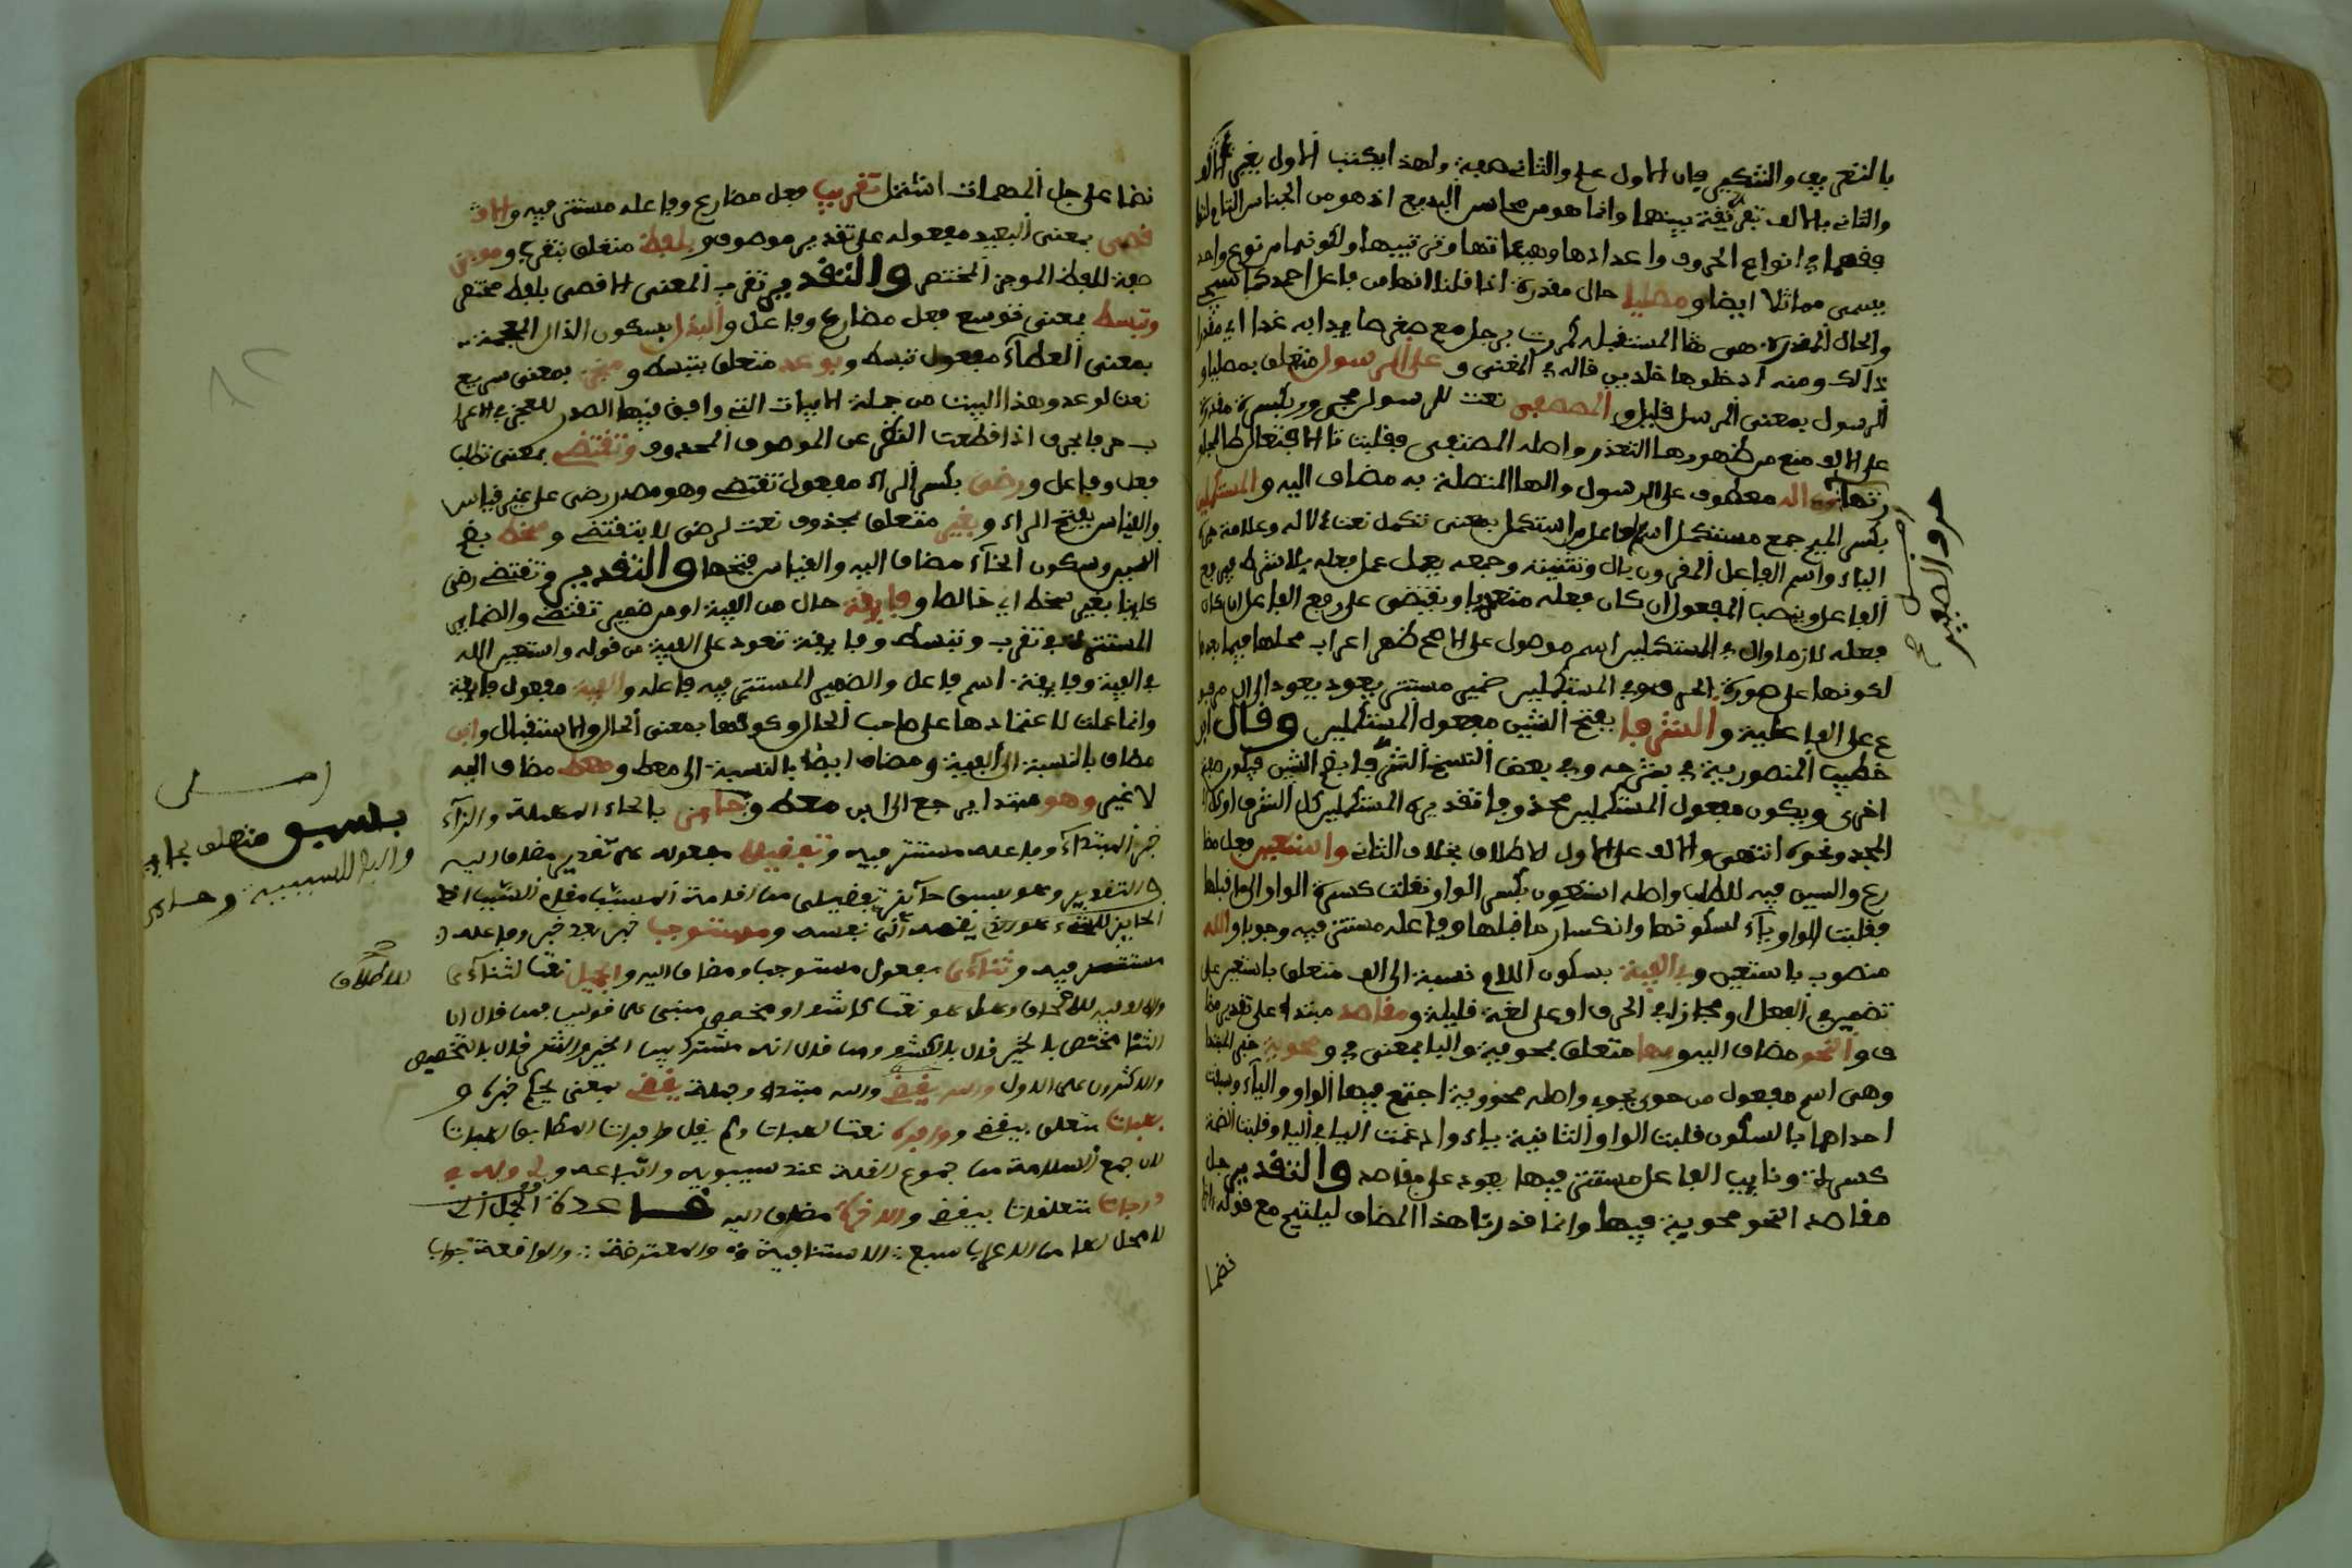 بالتعريف والتنكير فان الاول علم والثاني صفة ولهذا يكتب الاول بغير الف
والثاني بالالف تفرقة بينهما وانما هو من محاسن البديع اذ هو من الجناس التام
في انواع الحروف واعدادها وهيئاتها وترتيبها ولكونهما من نوع واحد
يسمى مماثلا ايضا ومصليا حال مقدرة اذا قلنا انها من فاعل احمد
والحال المقدرة هي المستقبلة كمررت برجل معه صقر صايدا به غدا اي مقدرا
ذالك ومنه ادخلوها خلدين قاله في المغني وعلى الرسول متعلق بمصليا و
الرسول بمعنى المرسل والمصطفى نعت للرسول مجرور بكسرة مقدرة
على الالف منع من ظهورها التعذر واصله المصتفى فقلبت تا الافتعال طا
واله معطوف على الرسول والها المتصلة به مضاف اليه والمستكملين
بكسر الميم جمع مستكمل اسم فاعل من استكمل بمعنى تكمل نعت لاله وعلامة جره
الياء واسم الفاعل المقرون بال وتثنيته وجمعه يعمل عمل فعله بلا شرط فيرفع
الفاعل وينصب المفعول ان كان فعله متعديا ويقتصر على رفع الفاعل ان كان
فعله لازما وال في المستكملين اسم موصول على الاصح ظهر اعراب محلها فيما بعدها
لكونها على صورة الحرف وفي المستكملين ضمير مستتر يعود الى ال مرفو
ع على الفاعلية والشرفا بفتح الشين مفعول المستكملين وقال ابن
خطيب المنصورية في شرحه وفي بعض النسخ الشرفا بضم الشين فيكون صفة
اخرى ويكون مفعول المستكملين محذوفا تقديره المستكملين كل الشرف او
المجد ونحوه انتهى والالف على الاول للاطلاق بخلاف الثاني واستعين فعل مضا
رع والسين فيه للطلب واصله استعون بكسر الواو نقلت كسرة الواو الى ما قبلها
فقلبت الواو ياء لسكونها وانكسار ما قبلها وفاعله مستتر فيه وجوبا والله
منصوب باستعين وفي الفية بسكون اللام نسبة الى الف متعلق باستعين على
تضمين الفعل او مجاز في الحرف او على لغة قليلة ومقاصد مبتدا على تقدير مضا
ف والنحو مضاف اليه وبها متعلق بمحوية والبا بمعنى في ومحوية خبر المبتدا
وهي اسم مفعول من حوى يحوي واصله محووية اجتمع فيها الواو والياء وسبقت
احداهما بالسكون قلبت الواو الثانية ياء وادغمت اليا في اليا وقلبت الضمة
كسرة ونايب الفاعل مستتر فيها يعود على مقاصد والتقدير جل
مقاصد النحو محوية فيها وانما قدرنا هذا المضاف ليلتيم مع قوله
نضما
اصل
نضما على جل المهمات اشتمل تقرب فعل مضارع وفاعله مستتر فيه والا
قصى بمعنى البعيد مفعوله على تقدير موصوف وبلفظ متعلق بتقرب وموجز
صفة للفظ الموجز المختصر والتقدير تقرب المعنى الاقصى بلفظ مختصر
وتبسط بمعنى توسع فعل مضارع وفاعل والبذل بسكون الذال المعجمة
بمعنى العطاء مفعول تبسط وبوعد متعلق بتبسط ومنجز بمعنى سريع
نعت لوعد وهذا البيت من جملة الابيات التي وافق فيها الصدر للعجز في الاعرا
ب حرفا بحرف اذا قطعت النظر عن الموصوف المحذوف وتقتضي بمعنى تطلب
فعل وفاعل ورضى بكسر الراء مفعول تقتضي وهو مصدر رضي على غير قياس
والقياس بفتح الراء وبغير متعلق بمحذوف نعت لرضى لا بتقتضي وسخط بضم
السين وسكون الخاء مضاف اليه والقياس فتحها والتقدير وتقتضي رضى
كاينا بغير سخط اي خالصا وفايقة حال من الفية او من ضمير تقتضي والضماير
المستترة في تقرب وتبسط وفايقة تعود على الفية من قوله واستعين الله
في الفية وفايقة اسم فاعل والضمير المستتر فيه فاعله والفية مفعول فايقة
وانما عملت لاعتمادها على صاحب الحال وكونها بمعنى الحال والاستقبال وابن
مضاف بالنسبة الى الفية ومضاف ايضا بالنسبة الى معط ومعط مضاف اليه
لا غير وهو مبتدا يرجع الى ابن معط وحايز بالحاء المهملة والزاء
خبر المبتداء وفاعله مستتر فيه وتفضيلا مفعوله على تقدير مضاف اليه
والتقدير وهو بسبق حايز تفضيلي من اقامة المسبب مقام السبب اذ
الحايز للشيء هو الذي يضمه الى نفسه ومستوجب خبر بعد خبر وفاعله
مستتر فيه وثناءي مفعول مستوجب ومضاف اليه والجميل نعت لثناءي
والالف للاطلاق وهل هو نعت كاشف او مخصص مبني على قولين فمن قال ان
الثنا مختص بالخير قال بالكشف ومن قال انه مشترك بين الخير والشر قال بالتخصيص
والاكثرون على الاول والله يقضي والله مبتدا وجملة يقضي بمعنى يحكم خبره و
بهبات متعلق بيقضي ووافره نعت لهبات ولم يقل وافرات المطابق لهبات
لان جمع السلامة من جموع القلة عند سيبويه واتباعه ولي وله في
درجات متعلقات بيقضي والاخره مضاف اليه قاعدة الجمل التي
لا محل لها من الاعراب سبع الاستينافية والمعترضة والواقعة جواب
اصل
بسبق متعلق بحايز
والبا للسببية
للاطلاق